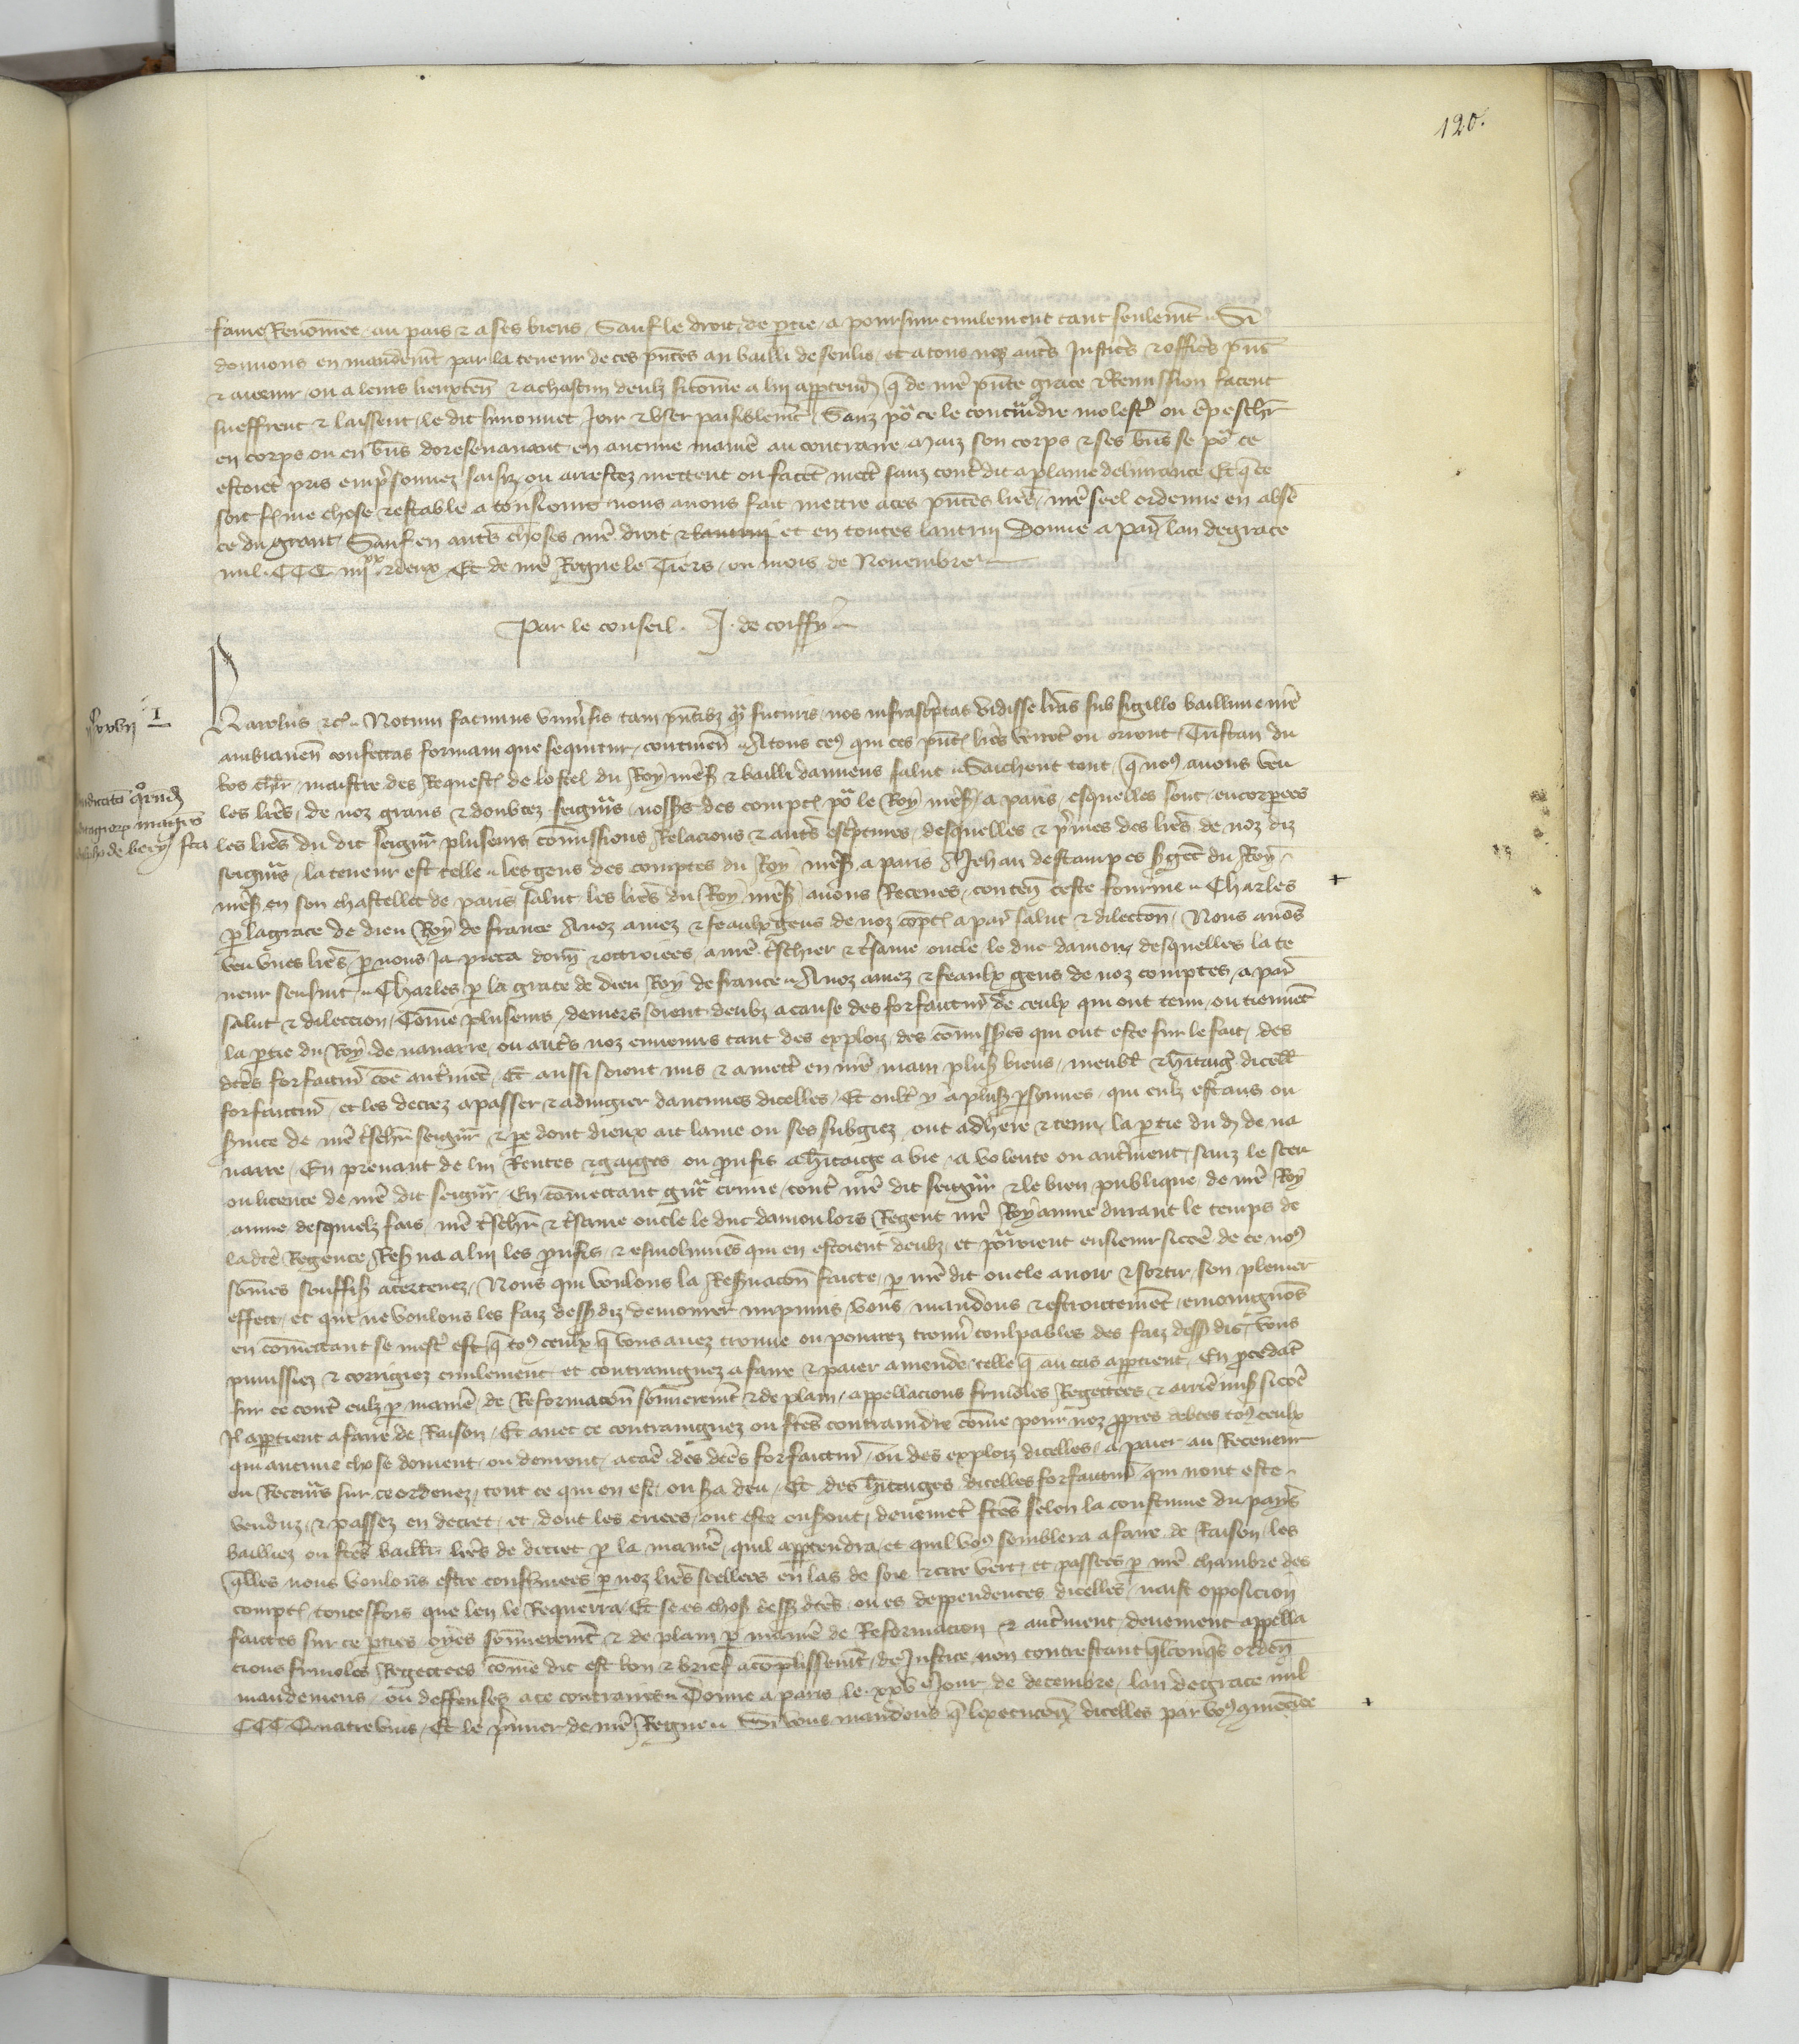 120.
fame Renom̃ee au pais & a ses biens Sauf le droit de ꝑtie a poursuir ciuilement tant seulem̃t Si
donnons en mandem̃t par la teneur de ces p̃ntes au bailli de senlis et a tous noz aut̃s Justic̃s & offic̃s p̃ns
& auenir ou a leurs lieuxten̄ & a chascun deulz sicom̃e a lui apptend̃ q̃ de nr̃e p̃nte grace & Remission facent
sueffrent & laissent le dit Innocent Joir & vser paisiblem̃t Sanz po᷑ ce le contraindre molest̃ ou ẽpeschr̃
en corps ou en bn̄s doresenauant en aucune manie᷑ au contraire Maiz son corps & ses bn̄s se po᷑ ce
estoiẽt pris emp̃sonnez saisiz ou arrestez mettent ou facẽt mett̃ sanz cont̃dit a plaine deliurance Et q̃ ce
soit ferme chose & estable a tousiours nous auons fait mettre a ces p̃ntes lr̃es nr̃e seel ordenne en absẽ
ce du grant Sauf en aut̃s choses nr̃e droit & lautrui et en toutes lautrui Donne a par̃ lan de grace
mil CCC iiijxx & deux Et de nr̃e Regne le Tiers ou mois de Nouembre
Par le conseil J. de coiffy
Karolus &c̃ Notum facimus vniũsis tam p̃ntibz q̃ futuris nos infrasc̃ptas vidisse lr̃as sub sigillo bailliuie nr̃e
ambianen̄ confectas formam que sequitur continen̄ A tous ceꝰ qui ces p̃nt̃ lr̃es verrõt ou orront Tristan du
bos chlr̃ maistre des Request̃ de lostel du Roy nr̃e s̃ & bailli damiens salut Saichent tout q̃ noꝰ auons veu
les lr̃es de noz grans & doubtez seigñrs noss̃rs des compt̃ po᷑ le Roy nr̃e s̃ a paris esquelles sont encorporees
les lr̃es du dit seigñr plusieurs com̃issions Relacions & aut̃s esc̃ptures desquelles & p̃mes des lr̃es de noz diz
seigñrs la teneur est telle Les gens des comptes du Roy nr̃e s̃ a paris A Jehan destampes s̃gẽt du Roy
nr̃e s̃ en son chastellet de paris salut les lr̃es du Roy nr̃e s̃ auons Receues conten̄ ceste fourme Charles
ꝑ la grace de dieu Roy de france A noz amez & feaulx gens de noz cõpt̃ a par̃ salut & dilection̄ Nous auõs
veu vnes lr̃es ꝑ nous Ja pieca donn̄ & ottroiees a nr̃e t̃schier & t̃same oncle le duc danjou desquelles la te
neur sensuit Charles ꝑ la grace de dieu Roy de france A noz amez & feaulx gens de noz comptes a par̃
salut & dileccion Com̃e plusieurs deniers soient deubz a cause des forfaictur̃ de ceulx qui ont tenu ou tiennẽt
la ꝑtie du Roy de nauarre ou aut̃s noz ennemis tant des exploiz des com̃issres qui ont este sur le fait des
dc̃es forfaictur̃ cõe aut̃mẽt Et aussi soient mis & a mett̃ en nr̃e main plus̃ biens meubl̃ & h̃itaig̃ dicell̃
forfaictur̃ et les decrez a passer & adiugier daucunes dicelles Et oult̃ y a plus̃ ꝑsonnes qui eulz estans ou
s̃uice de nr̃e t̃schr̃ seigñr & pe᷑ dont dieux ait lame ou ses subgiez ont adhere & tenu la ꝑtie du d̃ de na
uarre En prenant de lui Rentes & gaiges ou proufis a h̃itaige a vie a volente ou aut̃ment sanz le sceu
ou licence de nr̃e dit seigñr En com̃ettant gñt crime cont̃ nr̃e dit seigñr & le bien publique de nr̃e Roy
aume desquielz fais nr̃e t̃schr̃ & t̃same oncle le duc danjou lors Regent nr̃e Royaume durant le temps de
la dc̃e Regence Res̃ua a lui les proufis & esmolumẽs qui en estoient deubz et po᷑roient ensieuir sicõe de ce noꝰ
som̃es souffis̃ acertenez Nous qui voulons la Res̃uacon̄ faicte ꝑ nr̃e dit oncle auoir & sortir son plenier
effect et qui ne voulons les faiz dess̃ diz demourer impunis vous mandons & estroictemẽt enioingnõs
en com̃ettant se mest̃ est q̃ toꝰ ceulx q̃ vous auez trouue ou pourrez trouũ coulpables des faiz dess̃ dis vous
punissiez & corrigiez ciuilement et contraingnez a faire & paier amende telle q̃ au cas apptient En ꝓcedãt
sur ce cont̃ eulz ꝑ manie᷑ de Reformacon̄ som̃eremẽt & de plain appellacions friuoles Regettees & arrie᷑ mis̃ sicõe
Il apptient a faire de Raison Et auec ce contraingnez ou fc̃es contraindre com̃e pour noz ꝓpres debtes toꝰ ceulx
qui aucune chose doiuent ou deuront a cãe des dc̃es forfaictur̃ ou des exploiz dicelles a paier au Receueur
ou Receũrs sur ce ordenez tout ce qui en est ou s̃a deu Et des h̃itaiges dicelles forfaictur̃ qui nont este
venduz & passez en decret et dont les criees ont este ou s̃ont deuemẽt fc̃es selon la coustume du pays
bailliez ou fc̃es baill̃ lr̃es de decret ꝑ la manie᷑ quil appꝑtendra et quil voꝰ semblera a faire de Raison les
q̃lles nous voulons estre conf̃mees ꝑ noz lr̃es scellees en las de soie & cire vert et passees ꝑ nr̃e chambre des
compt̃ toutesfois que len le Requerra Et se es chos̃ dess̃ dc̃es ou es deppendences dicelles naist opposicion
faictes sur ce ꝑties oyes som̃eremẽt & de plain ꝑ manie᷑ de Reformacion & aut̃ment deuement appella
cions friuoles Regettees com̃e dit est bon & brief acõplissem̃t de Justice non contrestant q̃lconq̃s orden̄
mandemens ou deffenses a ce contraires Donne a paris le xxve Jour de decembre lan de grace mil
CCC Quatrevins Et le p̃mier de nr̃e Regne Si vous mandons q̃ lexecucon̄ dicelles par voꝰ 9mẽcee